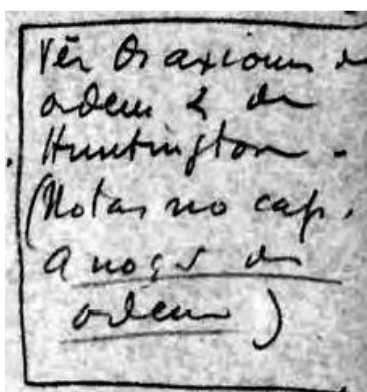 Vêr os axiomas de
ordem & de
Huntington.
(Notas no cap.
A noção de
ordem)